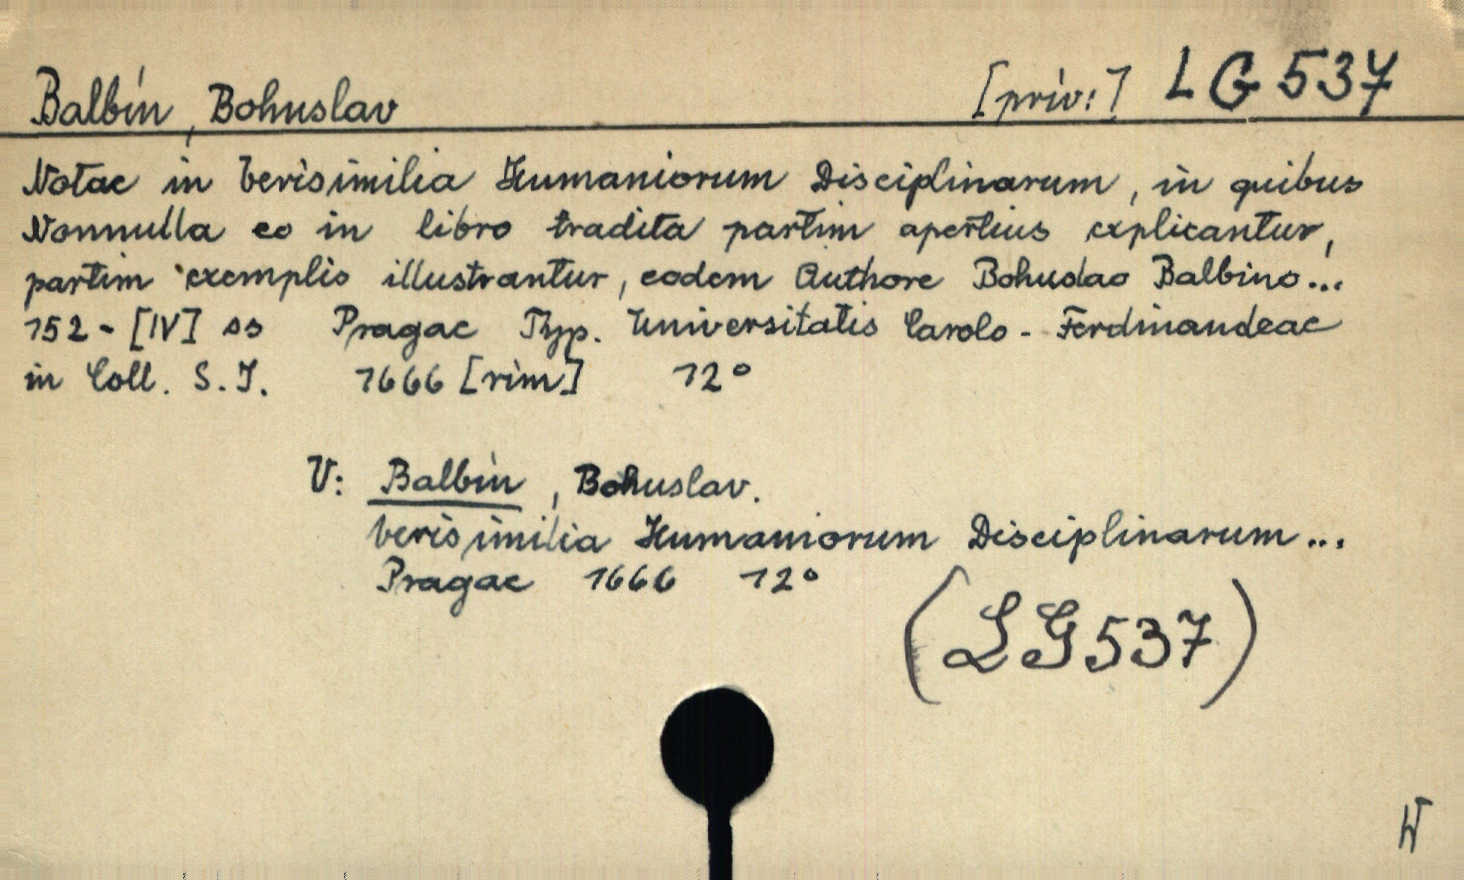 Balbín, Bohuslav [priv:] LG 537
Notae in Verisimilia Humaniorum Disciplinarum, in quibus
Nonnulla eo in libro tradita partim apertius explicantur,
partim exemplis illustrantur, eodem Authore Bohuslao Balbino...
152 - [IV] ss Pragae Typ. Universitatis Carolo - Ferdinandeae
in Coll. S. J. 1666 [rim] 12°
V: Balbín, Bohuslav.
Verisimilia Humaniorum Disciplinarum...
Pragae 1666 12°
(LG 537)
W